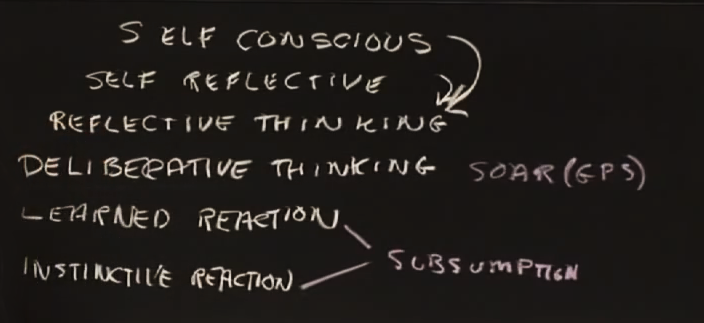 SELF CONSCIOUS
SELF REFLECTIVE
REFLECTIVE THINKING
DELIBERATIVE THINKING SOAR (GPS)
LEARNED REACTION
SUBSUMPTION
INSTINCTIVE REACTION